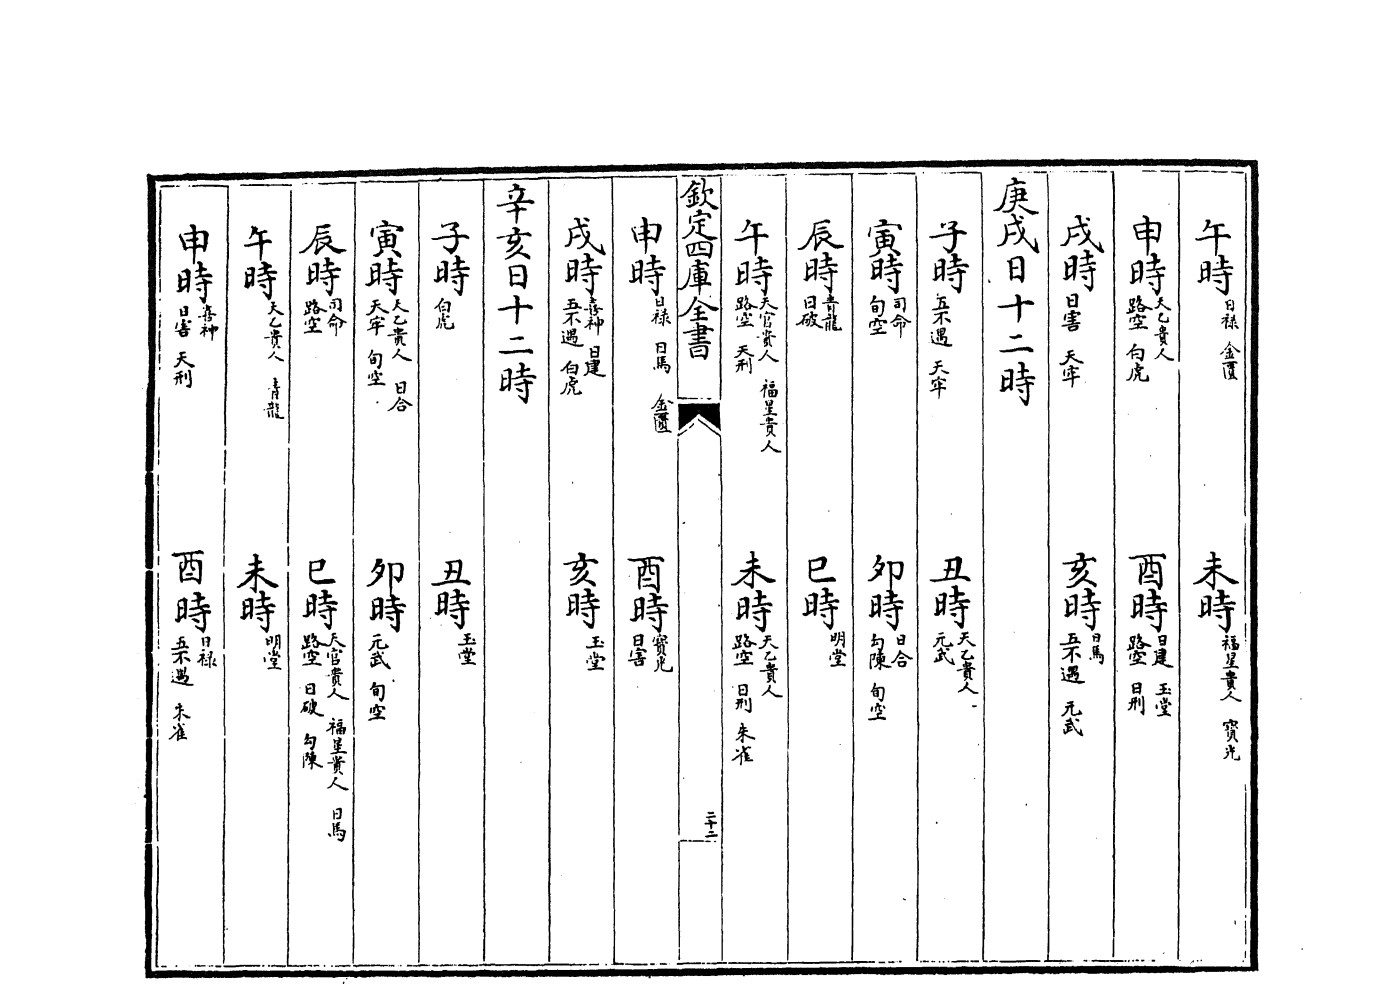 午時 日禄 金匱 未時 福星貴人 寳光
申時 天乙貴人 路空 白虎 酉時 日建 玉堂 路空 日刑
戌時 日害 天牢 亥時 日馬 五不遇 元武
庚戌日十二時
子時 五不遇 天牢 丑時 天乙貴人 元武
寅時 司命 旬空 卯時 日合 勾陳 旬空
辰時 青龍 日破 巳時 明堂
午時 天官貴人 福星貴人 路空 天刑 未時 天乙貴人 路空 日刑 朱雀
欽定四庫全書
二十二
申時 日禄 日馬 金匱 酉時 寳光 日害
戌時 喜神 日建 五不遇 白虎 亥時 玉堂
辛亥日十二時
子時 白虎 丑時 玉堂
寅時 天乙貴人 日合 天牢 旬空 卯時 元武 旬空
辰時 司命 路空 巳時 天官貴人 福星貴人 日馬 路空 日破 勾陳
午時 天乙貴人 青龍 未時 明堂
申時 喜神 日害 天刑 酉時 日禄 五不遇 朱雀